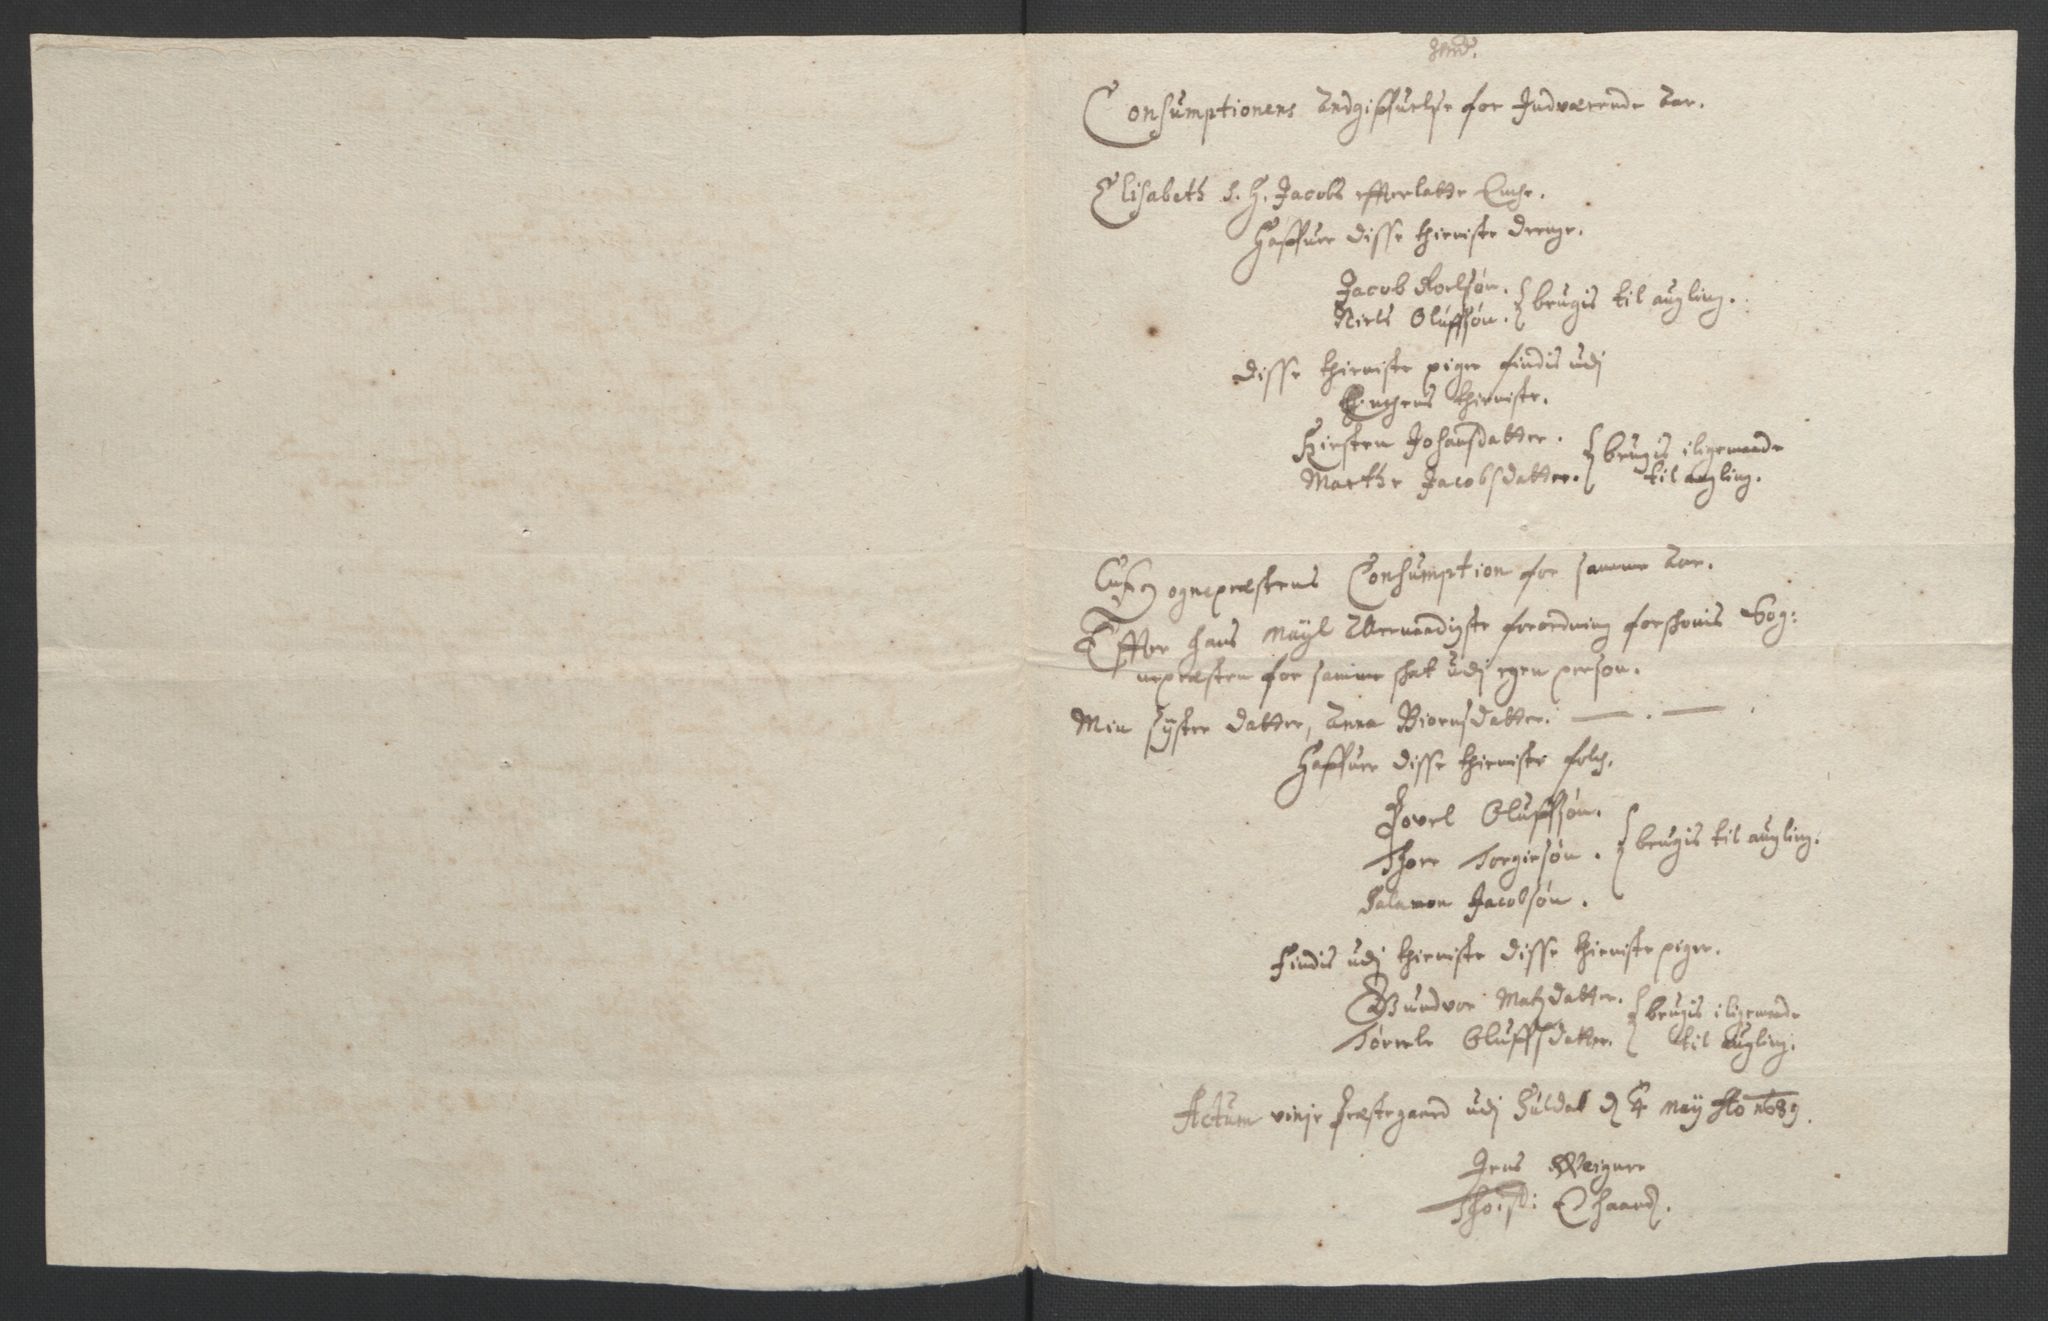 Consumptionens Andgiffuelse for Indværende Aar.
Elisabeth S. H. Jacobs effterlatte Enche.
Haffuer disse thieniste drenge.
Jacob Roelsøn. } brugis til augling.
Niels Oluffsøn.
disse thieniste piger findis udj
Enchens thieniste.
Kiersten Johansdatter. } brugis iligemaade
Marthe Jacobsdatter. til augling.
Sognepræstens Consumption for samme Aar.
Effter hans Mayl Allernaadigste forordning forschonis Sog:
nepræsten for samme skat udj egen person.
Min syster datter, Anna Biørnsdatter.
Haffuer disse thieniste folch.
Povel Oluffsøn.
Thore Torgiersøn. } brugis til augling.
Salamon Jacobsøn.
Findis udj thieniste disse thieniste piger.
Gundvor Matzdatter. } brugis iligemaade
Tørrele Oluffsdatter. til augling.
Actum vinje Præstegaard udj Suldal d 4 May Ao 1689.
Jens